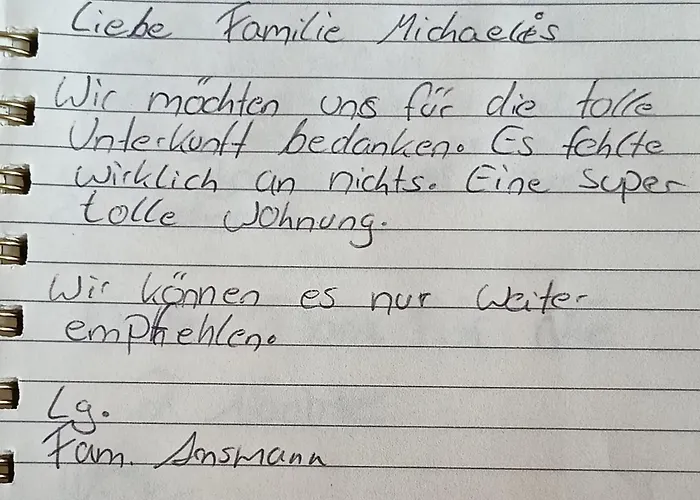 Liebe Familie Michaelis
Wir möchten uns für die tolle
Unterkunft bedanken. Es fehlte
wirklich an nichts. Eine super
tolle Wohnung.
Wir können es nur weiter
empfehlen.
Lg.
Fam. Ansmann